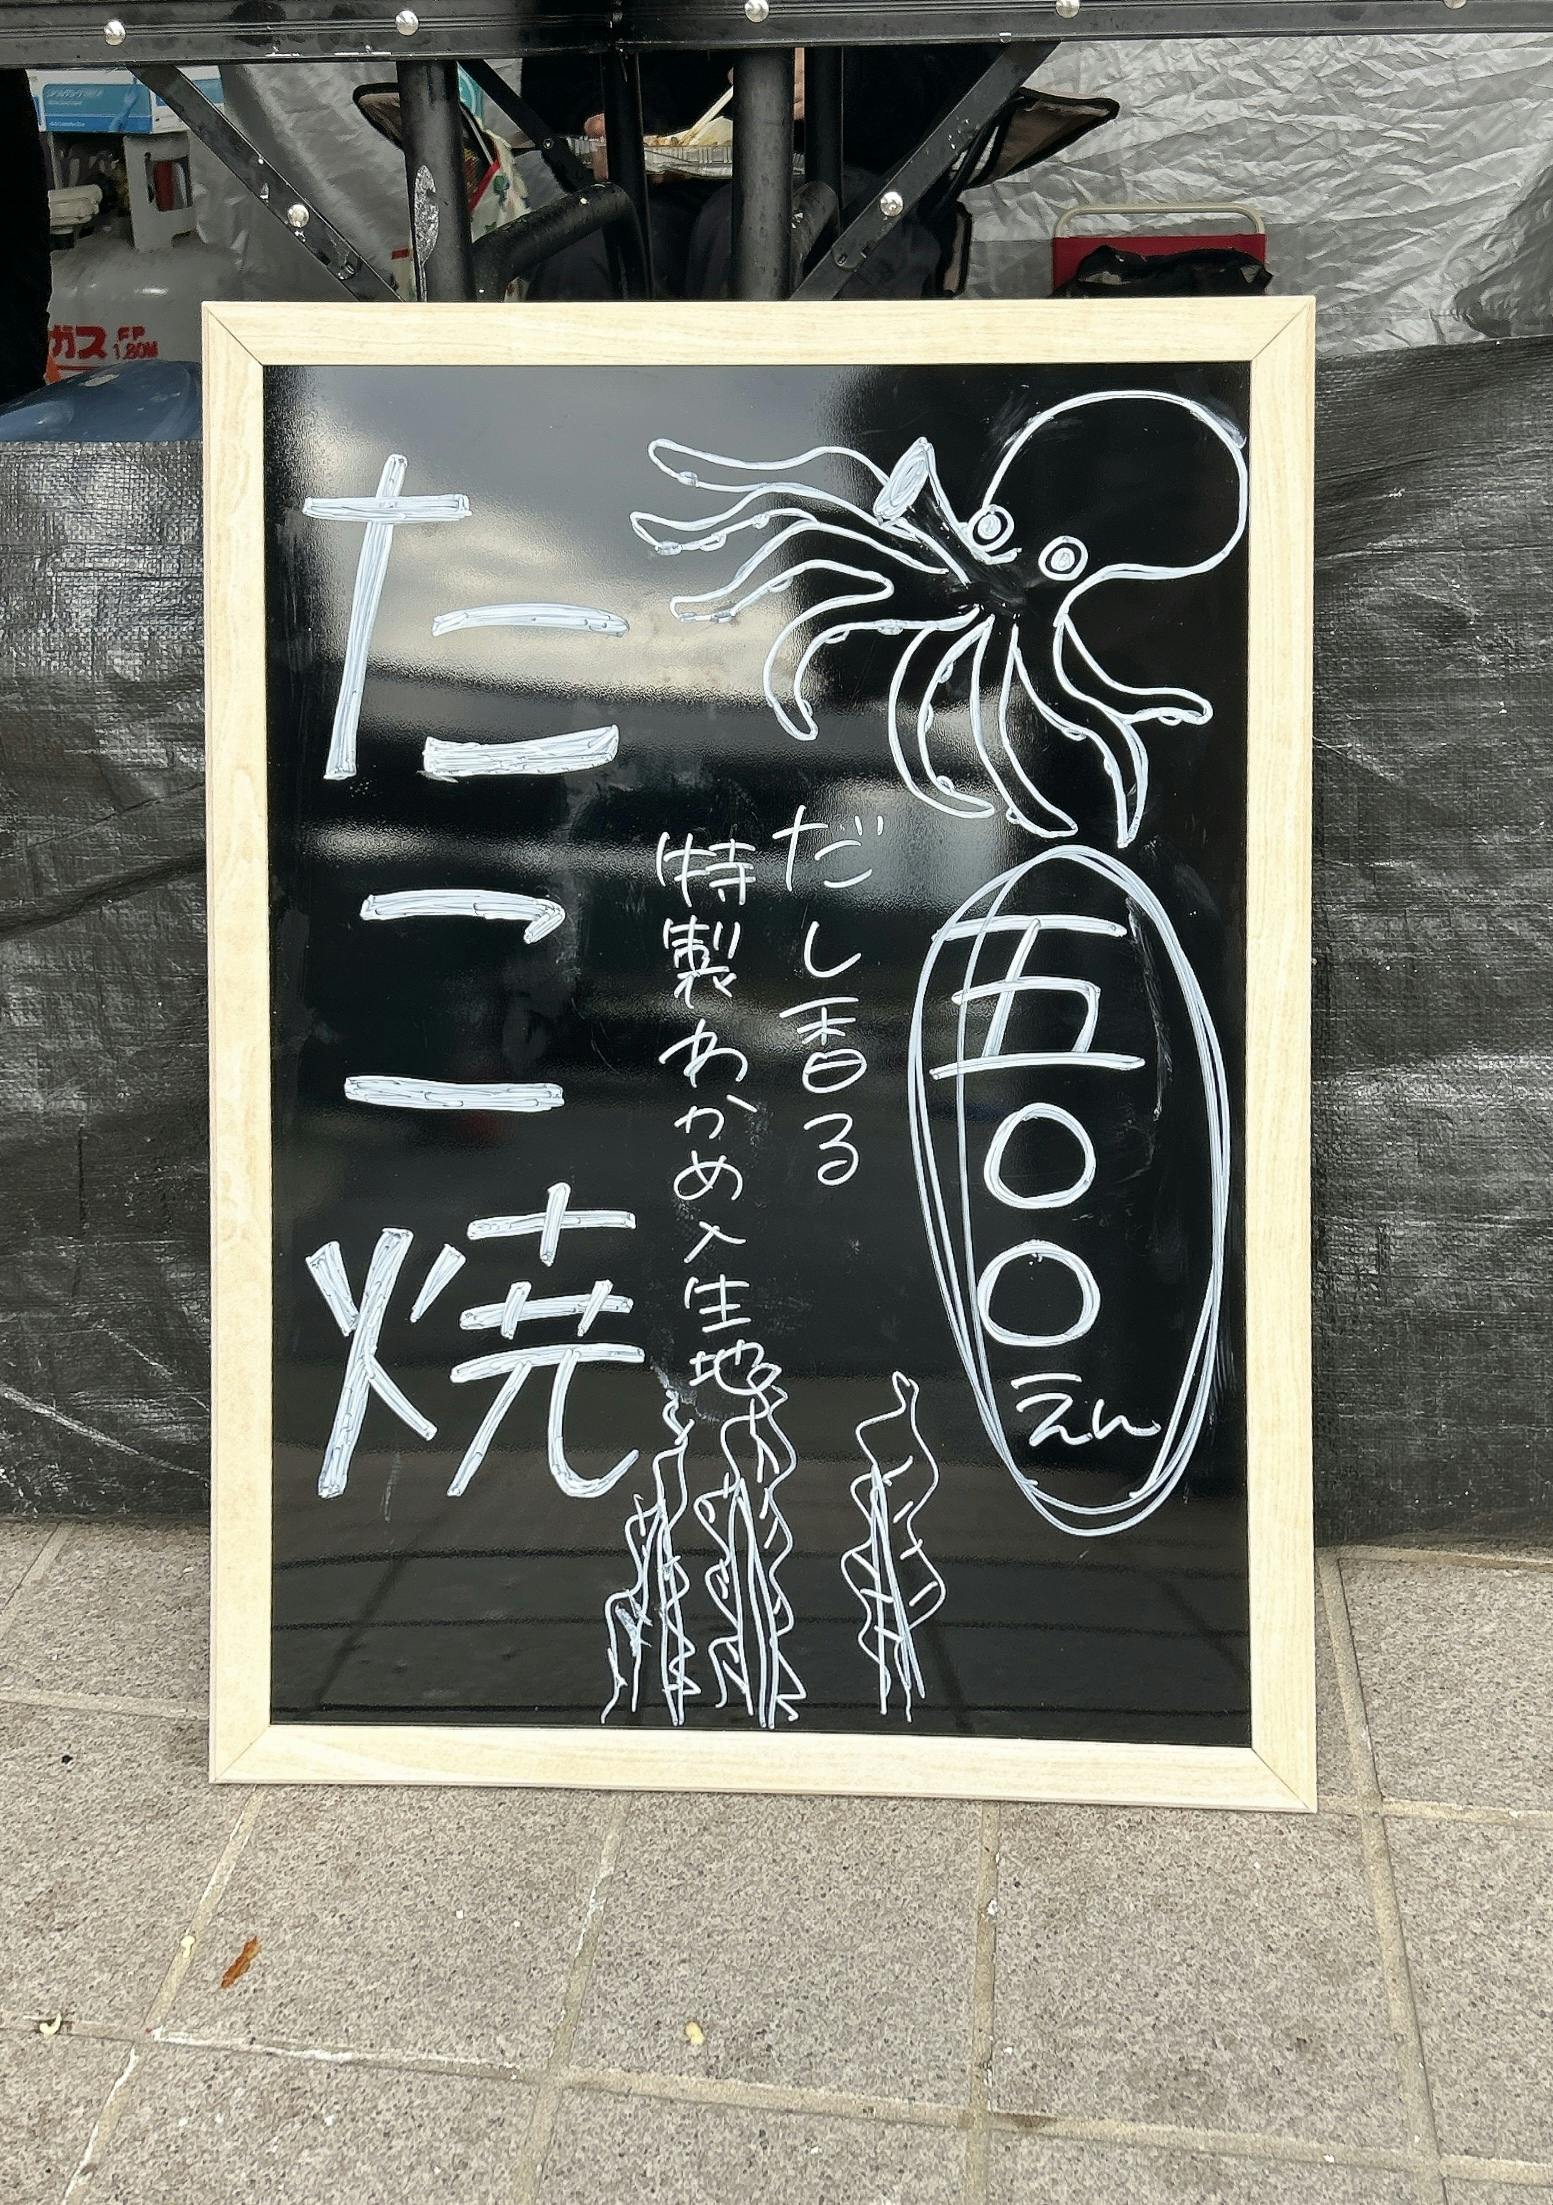 五〇〇えん
だし香る
特製わかめ入生地
たこ焼
ガス
FP
1.80M